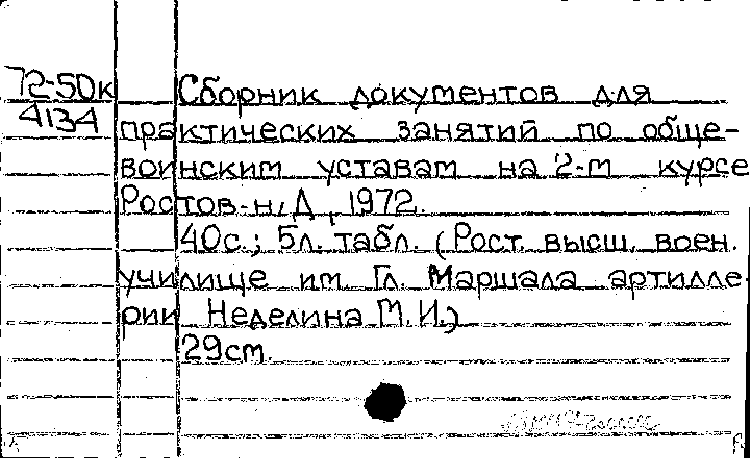 72-50к Сборник документов для
4134 практических занятий по обще-
воинским уставам на 2-м курсе
Ростов-н/Д, 1972.
40с.; 5л. табл. (Рост. высш. воен.
училище им. Гл. Маршала артилле-
рии Неделина М.И.)
29см.